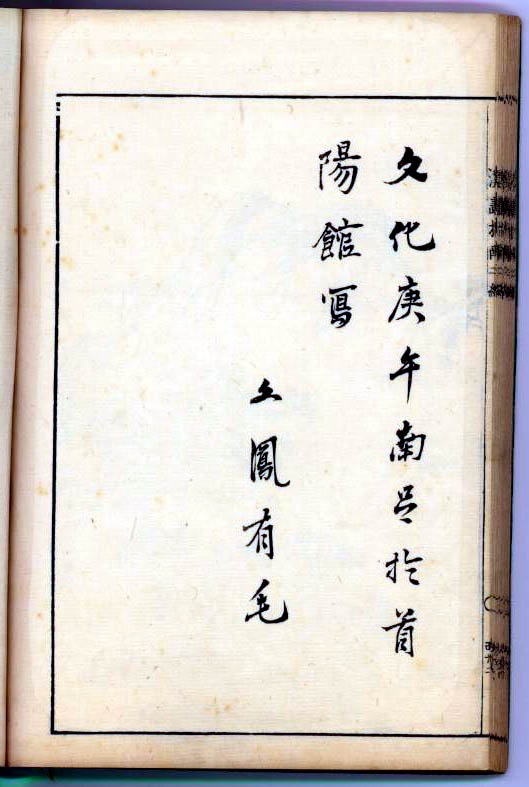 文化庚午南呂於首
陽館寫
五鳳有毛